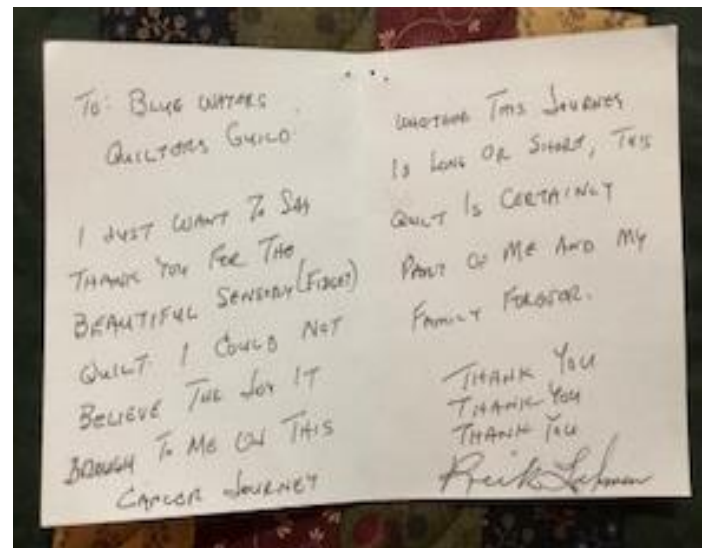 To: Blue Waters
Quilters Guild
I just want to say
thank you for the
beautiful sensory (fidget)
quilt. I could not
believe the joy it
brough to me on this
cancer journey
whether this journey
is long or short, this
quilt is certainly
part of me and my
family forever.
Thank you
Thank you
Thank you